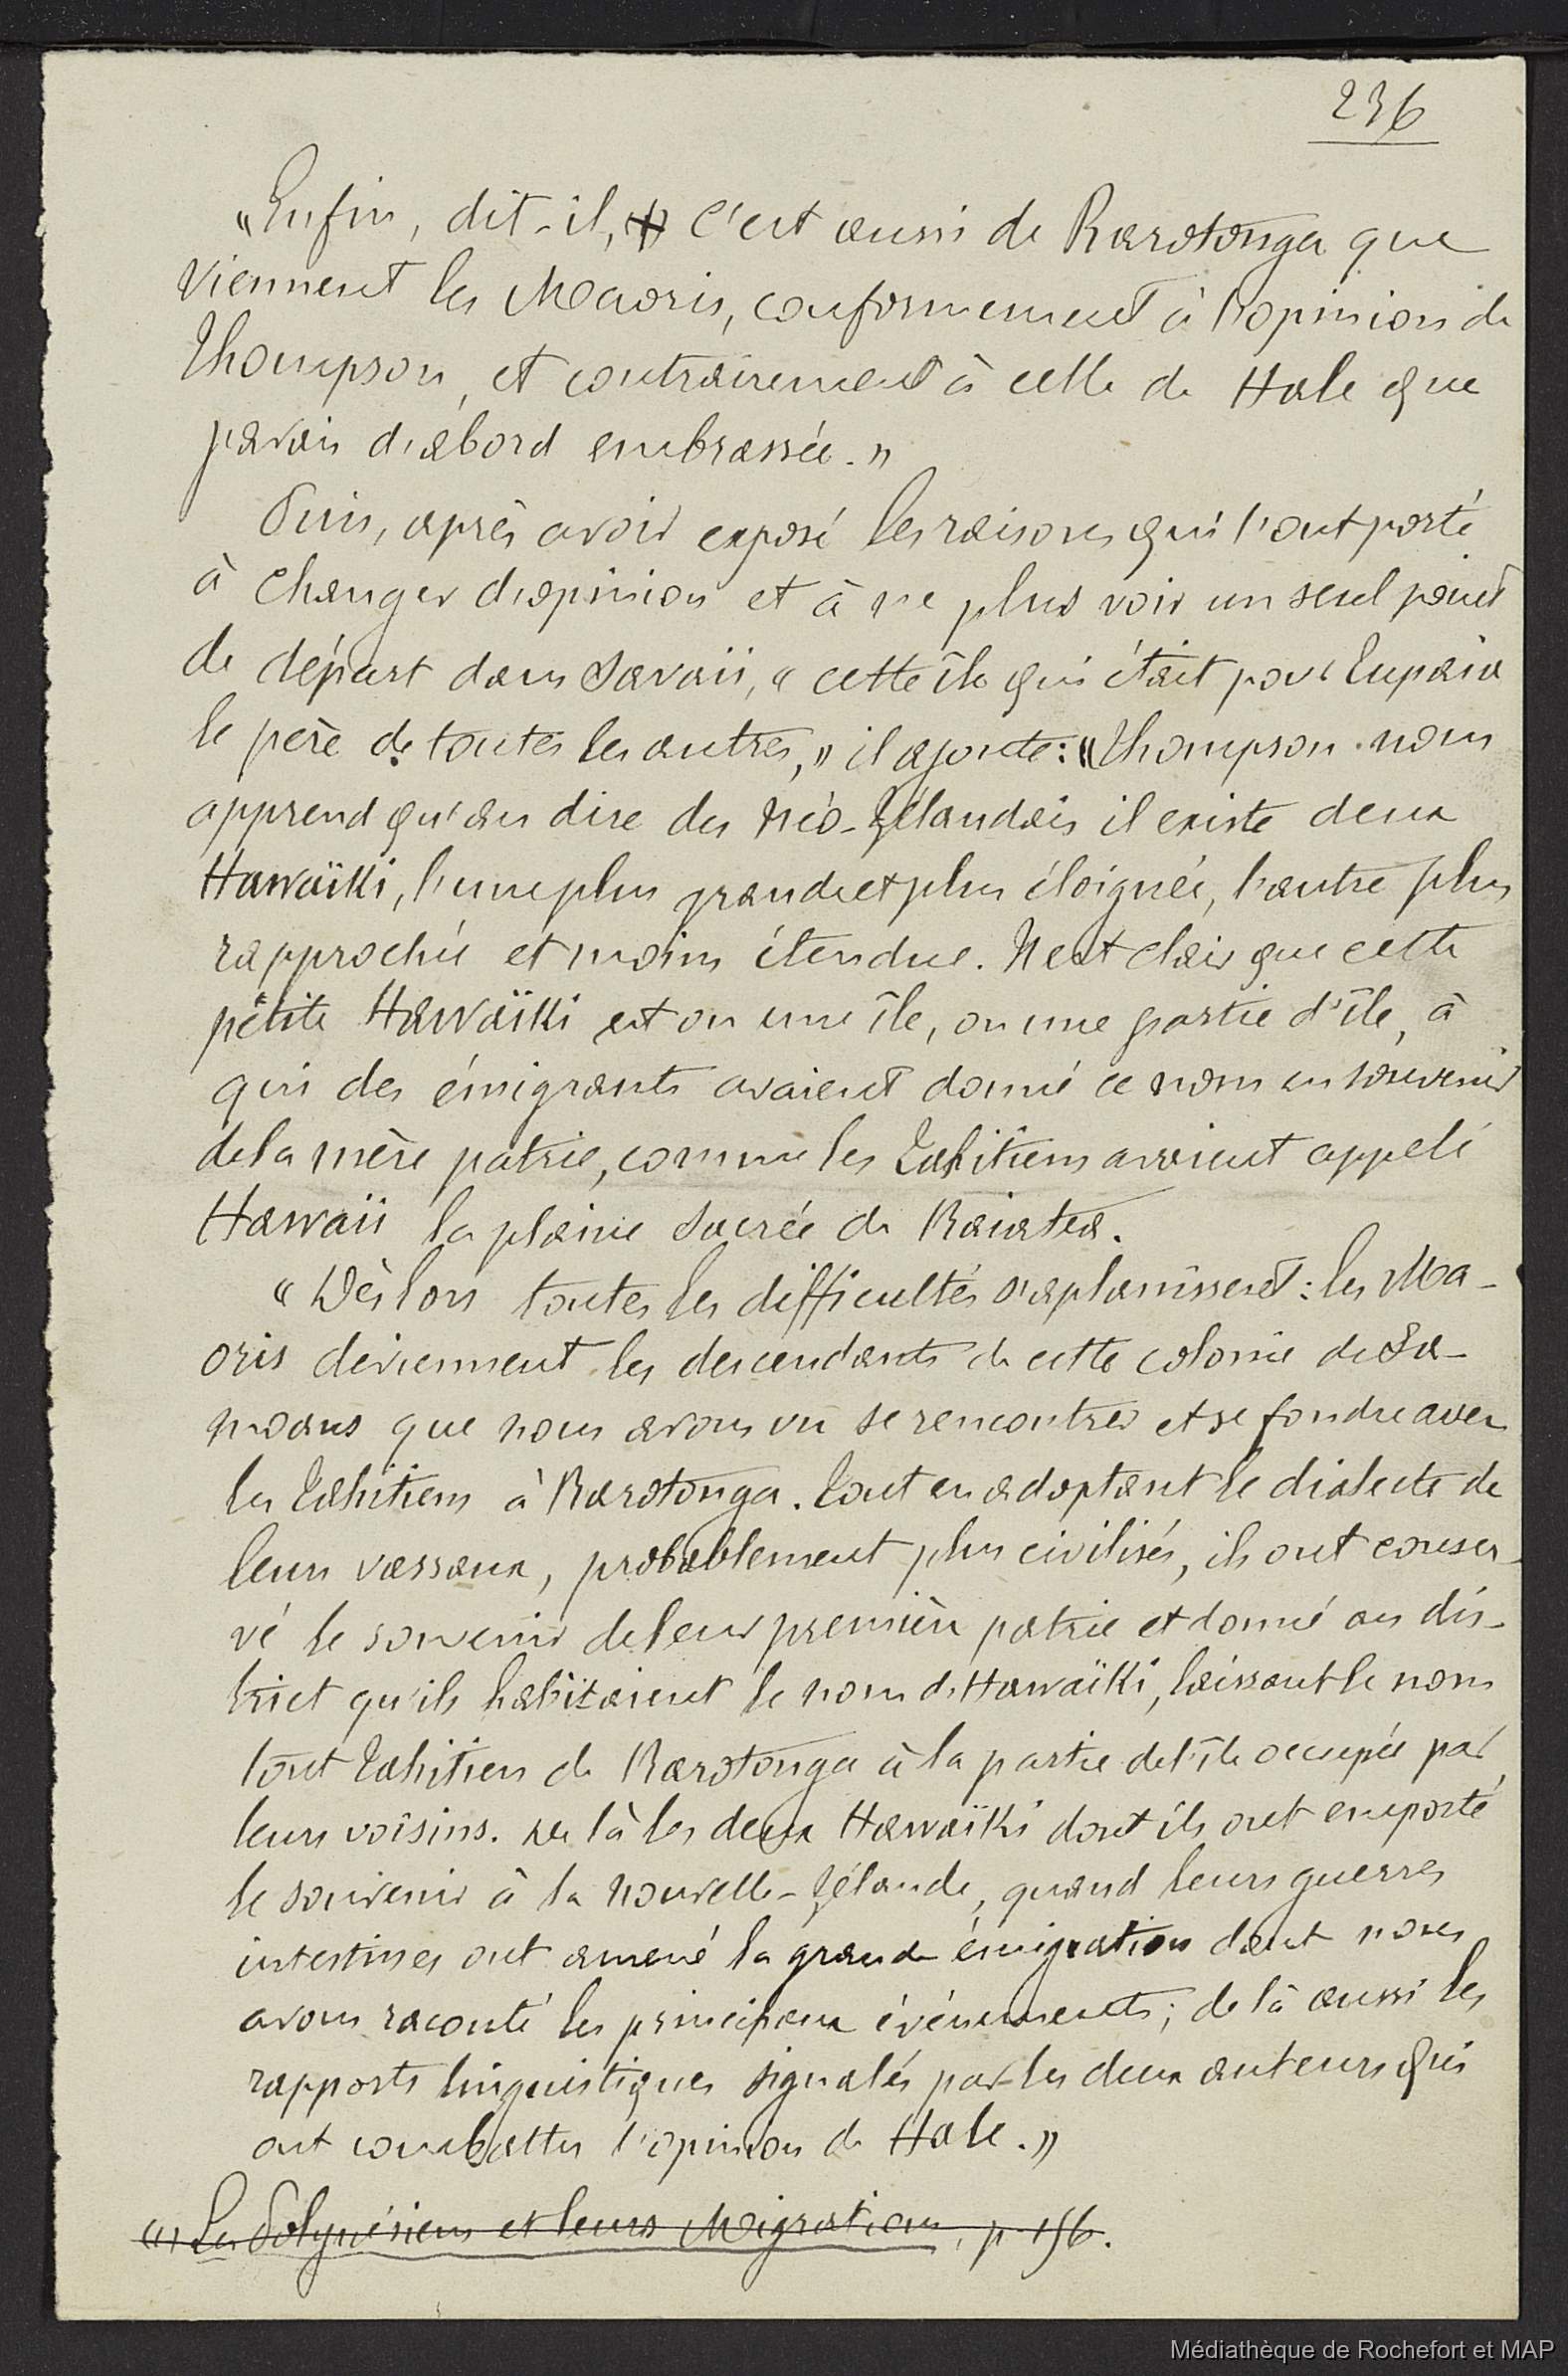 236
"Enfin, dit-il, c'est aussi de Rarotonga que
viennent les Maoris, conformement à l'opinion de
Thompson, et contrairement à celle de Hale que
j'avais d'abord embrassée."
Puis, après avoir exposé les raisons qui l'ont porté
à changer d'opinion et à ne plus voir un seul point
de départ dans Savaii, "cette île qui était pour Tupaia
le père de toutes les autres," il ajoute: "Thompson nous
apprend qu'au dire des Néo-Zélandais il existe deux
Hawaïki, l'une plus grande et plus éloignée, l'autre plus
rapprochée et moins étendue. Il est clair que cette
petite Hawaïki est ou une île, ou une partie d'île, à
qui des émigrants avaient donné ce nom en souvenir
de la mère patrie, comme les Tahitiens avaient appelé
Hawaii la plaine sacrée de Raiatea.
"Dès lors toutes les difficultés s'aplanissent: les Ma-
oris deviennent les descendants de cette colonie de Sa-
moans que nous avons vu se rencontrer et se fondre avec
les Tahitiens à Rarotonga. Tout en adoptant le dialecte de
leurs vassaux, probablement plus civilisés, ils ont conser-
vé le souvenir de leur première patrie et donné au dis-
trict qu'ils habitaient le nom de Hawaïki, laissant le nom
tout Tahitien de Rarotonga à la partie de l'île occupée par
leurs voisins. De là les deux Hawaïki dont ils ont emporté
le souvenir à la Nouvelle-Zélande, quand leurs guerres
intestines ont amené la grande émigration dont nous
avons raconté les principaux événements; de là aussi les
rapports linguistiques signalés par les deux auteurs qui
ont combattu l'opinion de Hale."
(1) Les Polynésiens et leurs Migrations, p. 156.
Médiathèque de Rochefort et MAP